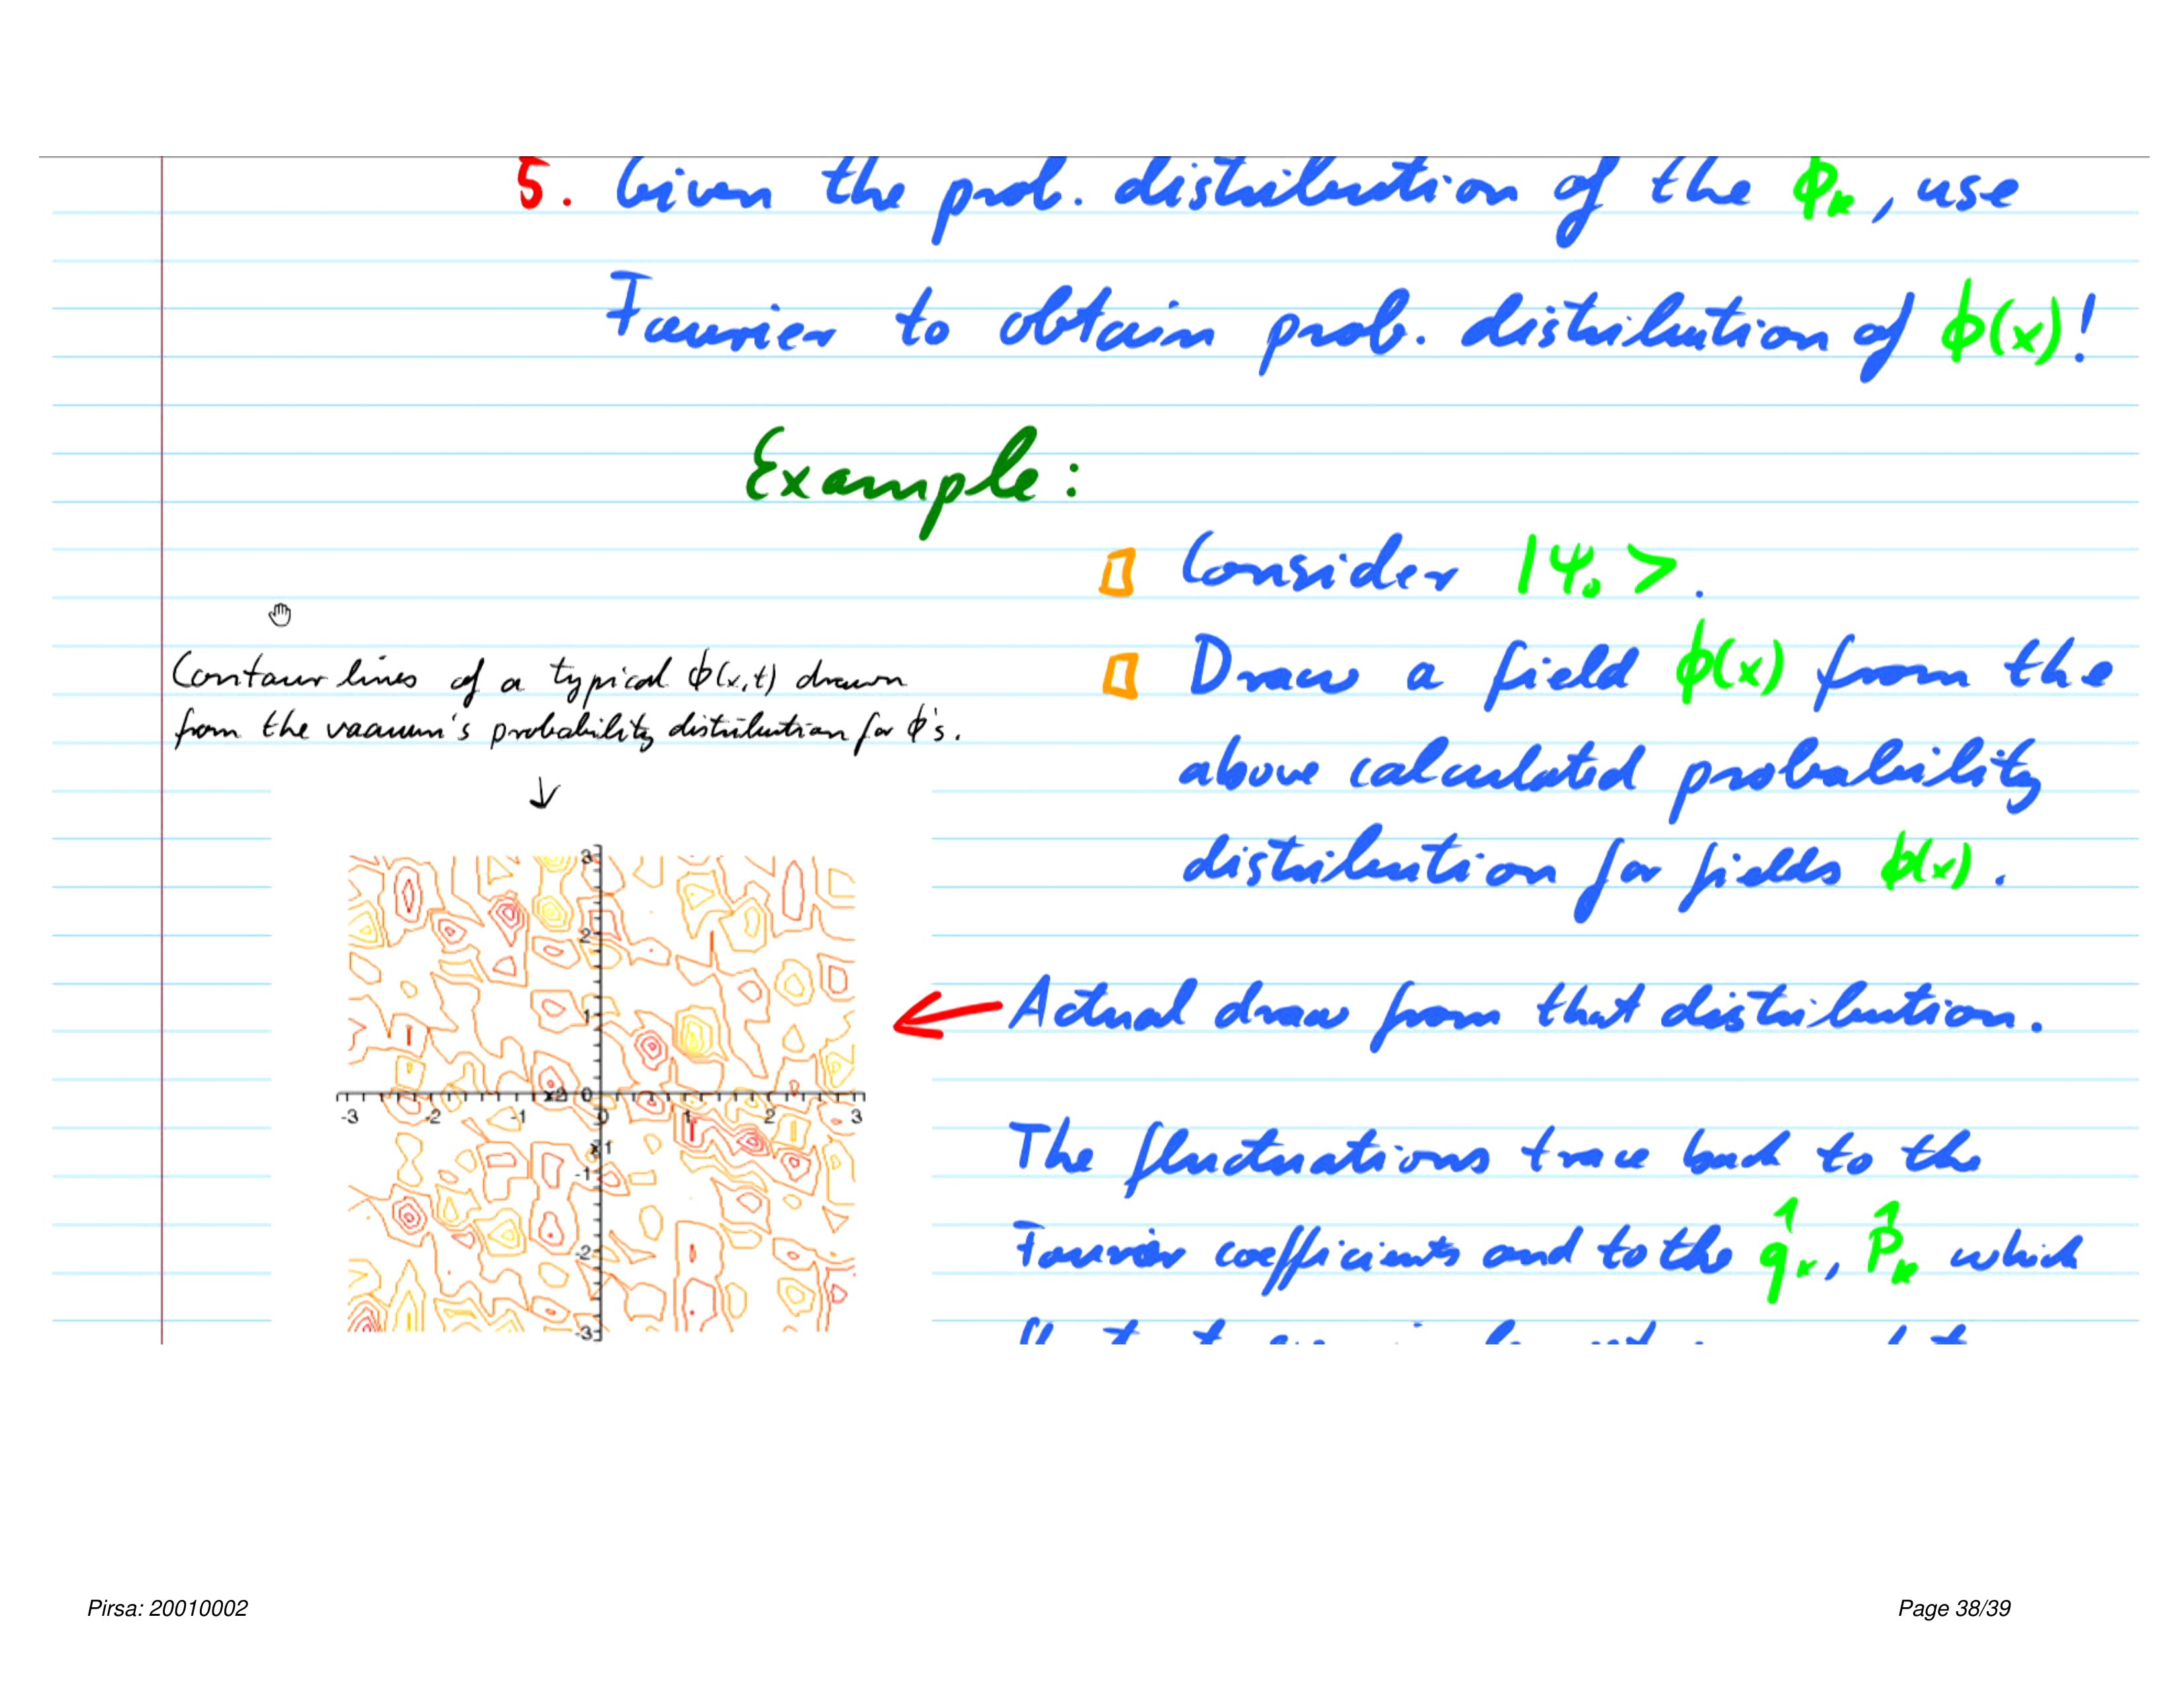 5. Given the prob. distribution of the ϕₖ, use
Fourier to obtain prob. distribution of ϕ(x)!
Example:
Consider |ψ₀>.
Draw a field ϕ(x) from the
above calculated probability
distribution for fields ϕ(x).
Contour lines of a typical ϕ(x,t) drawn
from the vacuum's probability distribution for ϕ's.
3
2
1
x2 0
-3 -2 -1 0 1 2 3
x1
-1
-2
-3
Actual draw from that distribution.
The fluctuations trace back to the
Fourier coefficients and to the q̂ₖ, p̂ₖ which
Pirsa: 20010002
Page 38/39